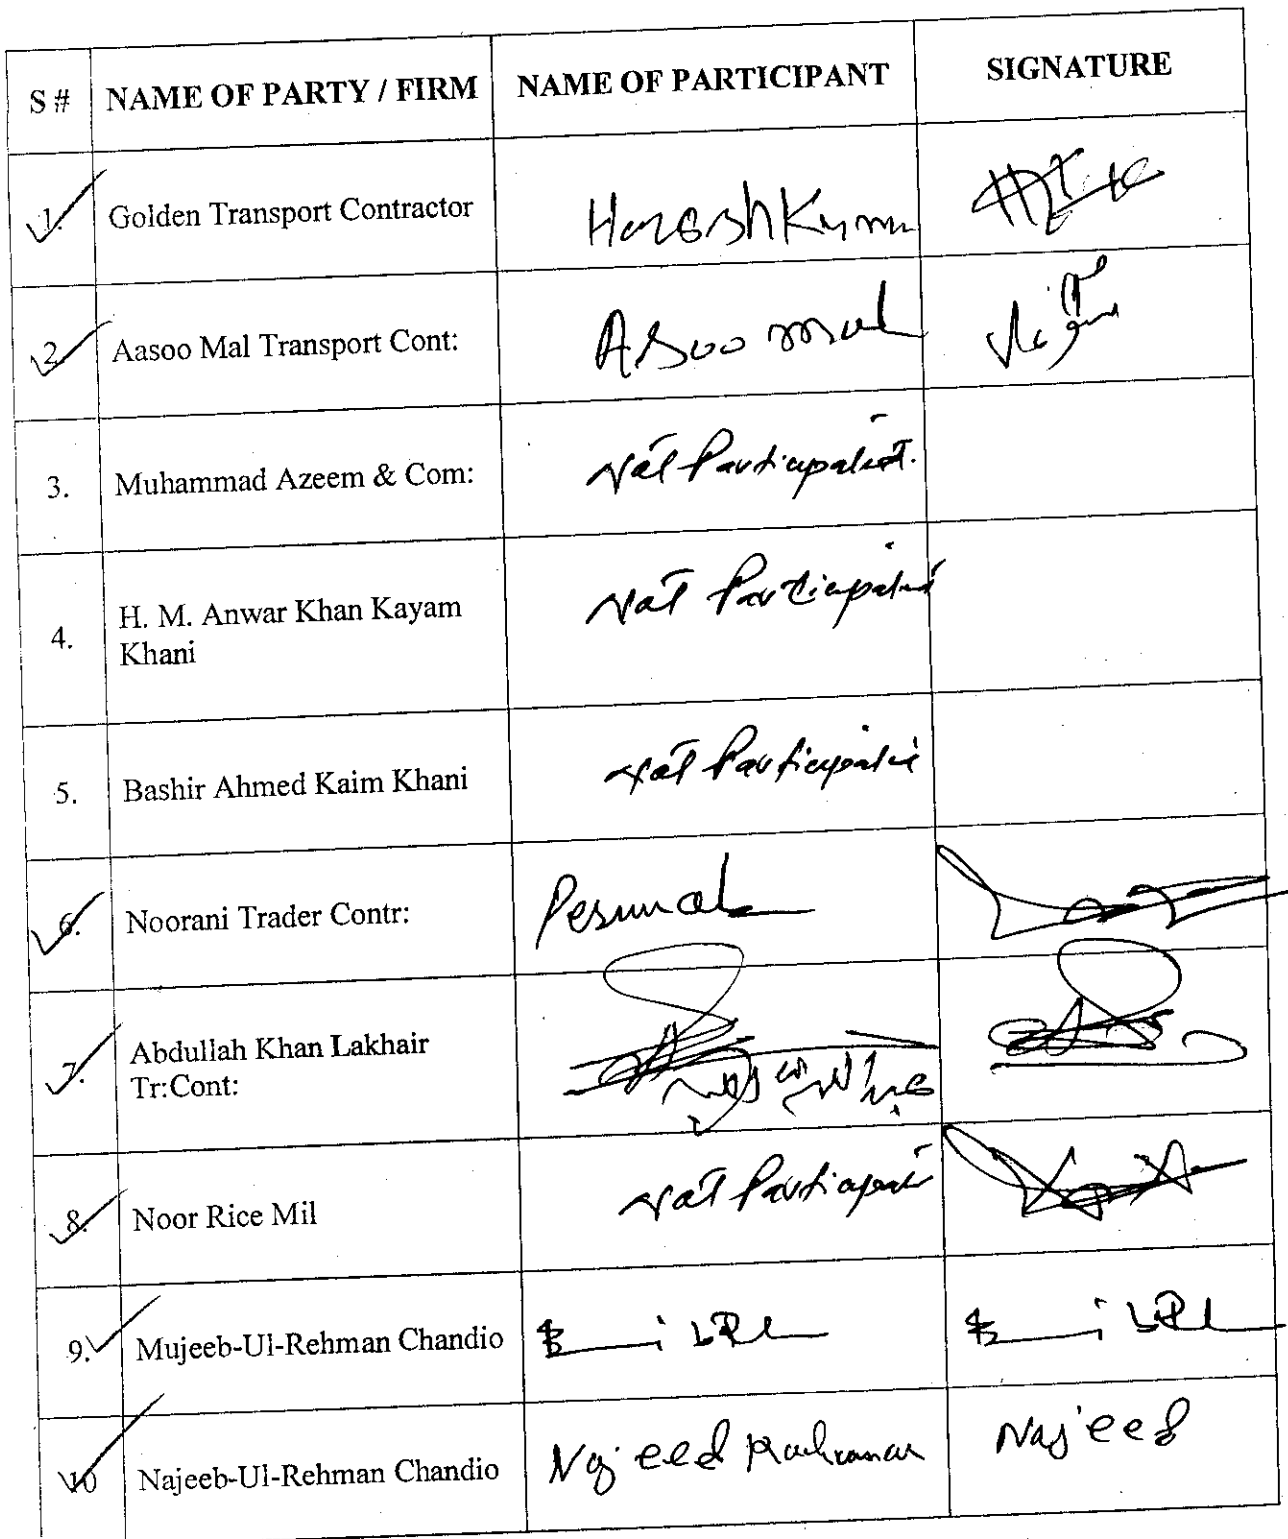 S # NAME OF PARTY / FIRM NAME OF PARTICIPANT SIGNATURE
1. Golden Transport Contractor Haresh Kumar
2. Aasoo Mal Transport Cont: Asoo mal
3. Muhammad Azeem & Com: Not Participated.
4. H. M. Anwar Khan Kayam
Khani Not Participated
5. Bashir Ahmed Kaim Khani Not Participated
6. Noorani Trader Contr: Pesumal
7. Abdullah Khan Lakhair
Tr:Cont:
8. Noor Rice Mil Not Participated
9. Mujeeb-Ul-Rehman Chandio
10 Najeeb-Ul-Rehman Chandio Najeeb Najeeb